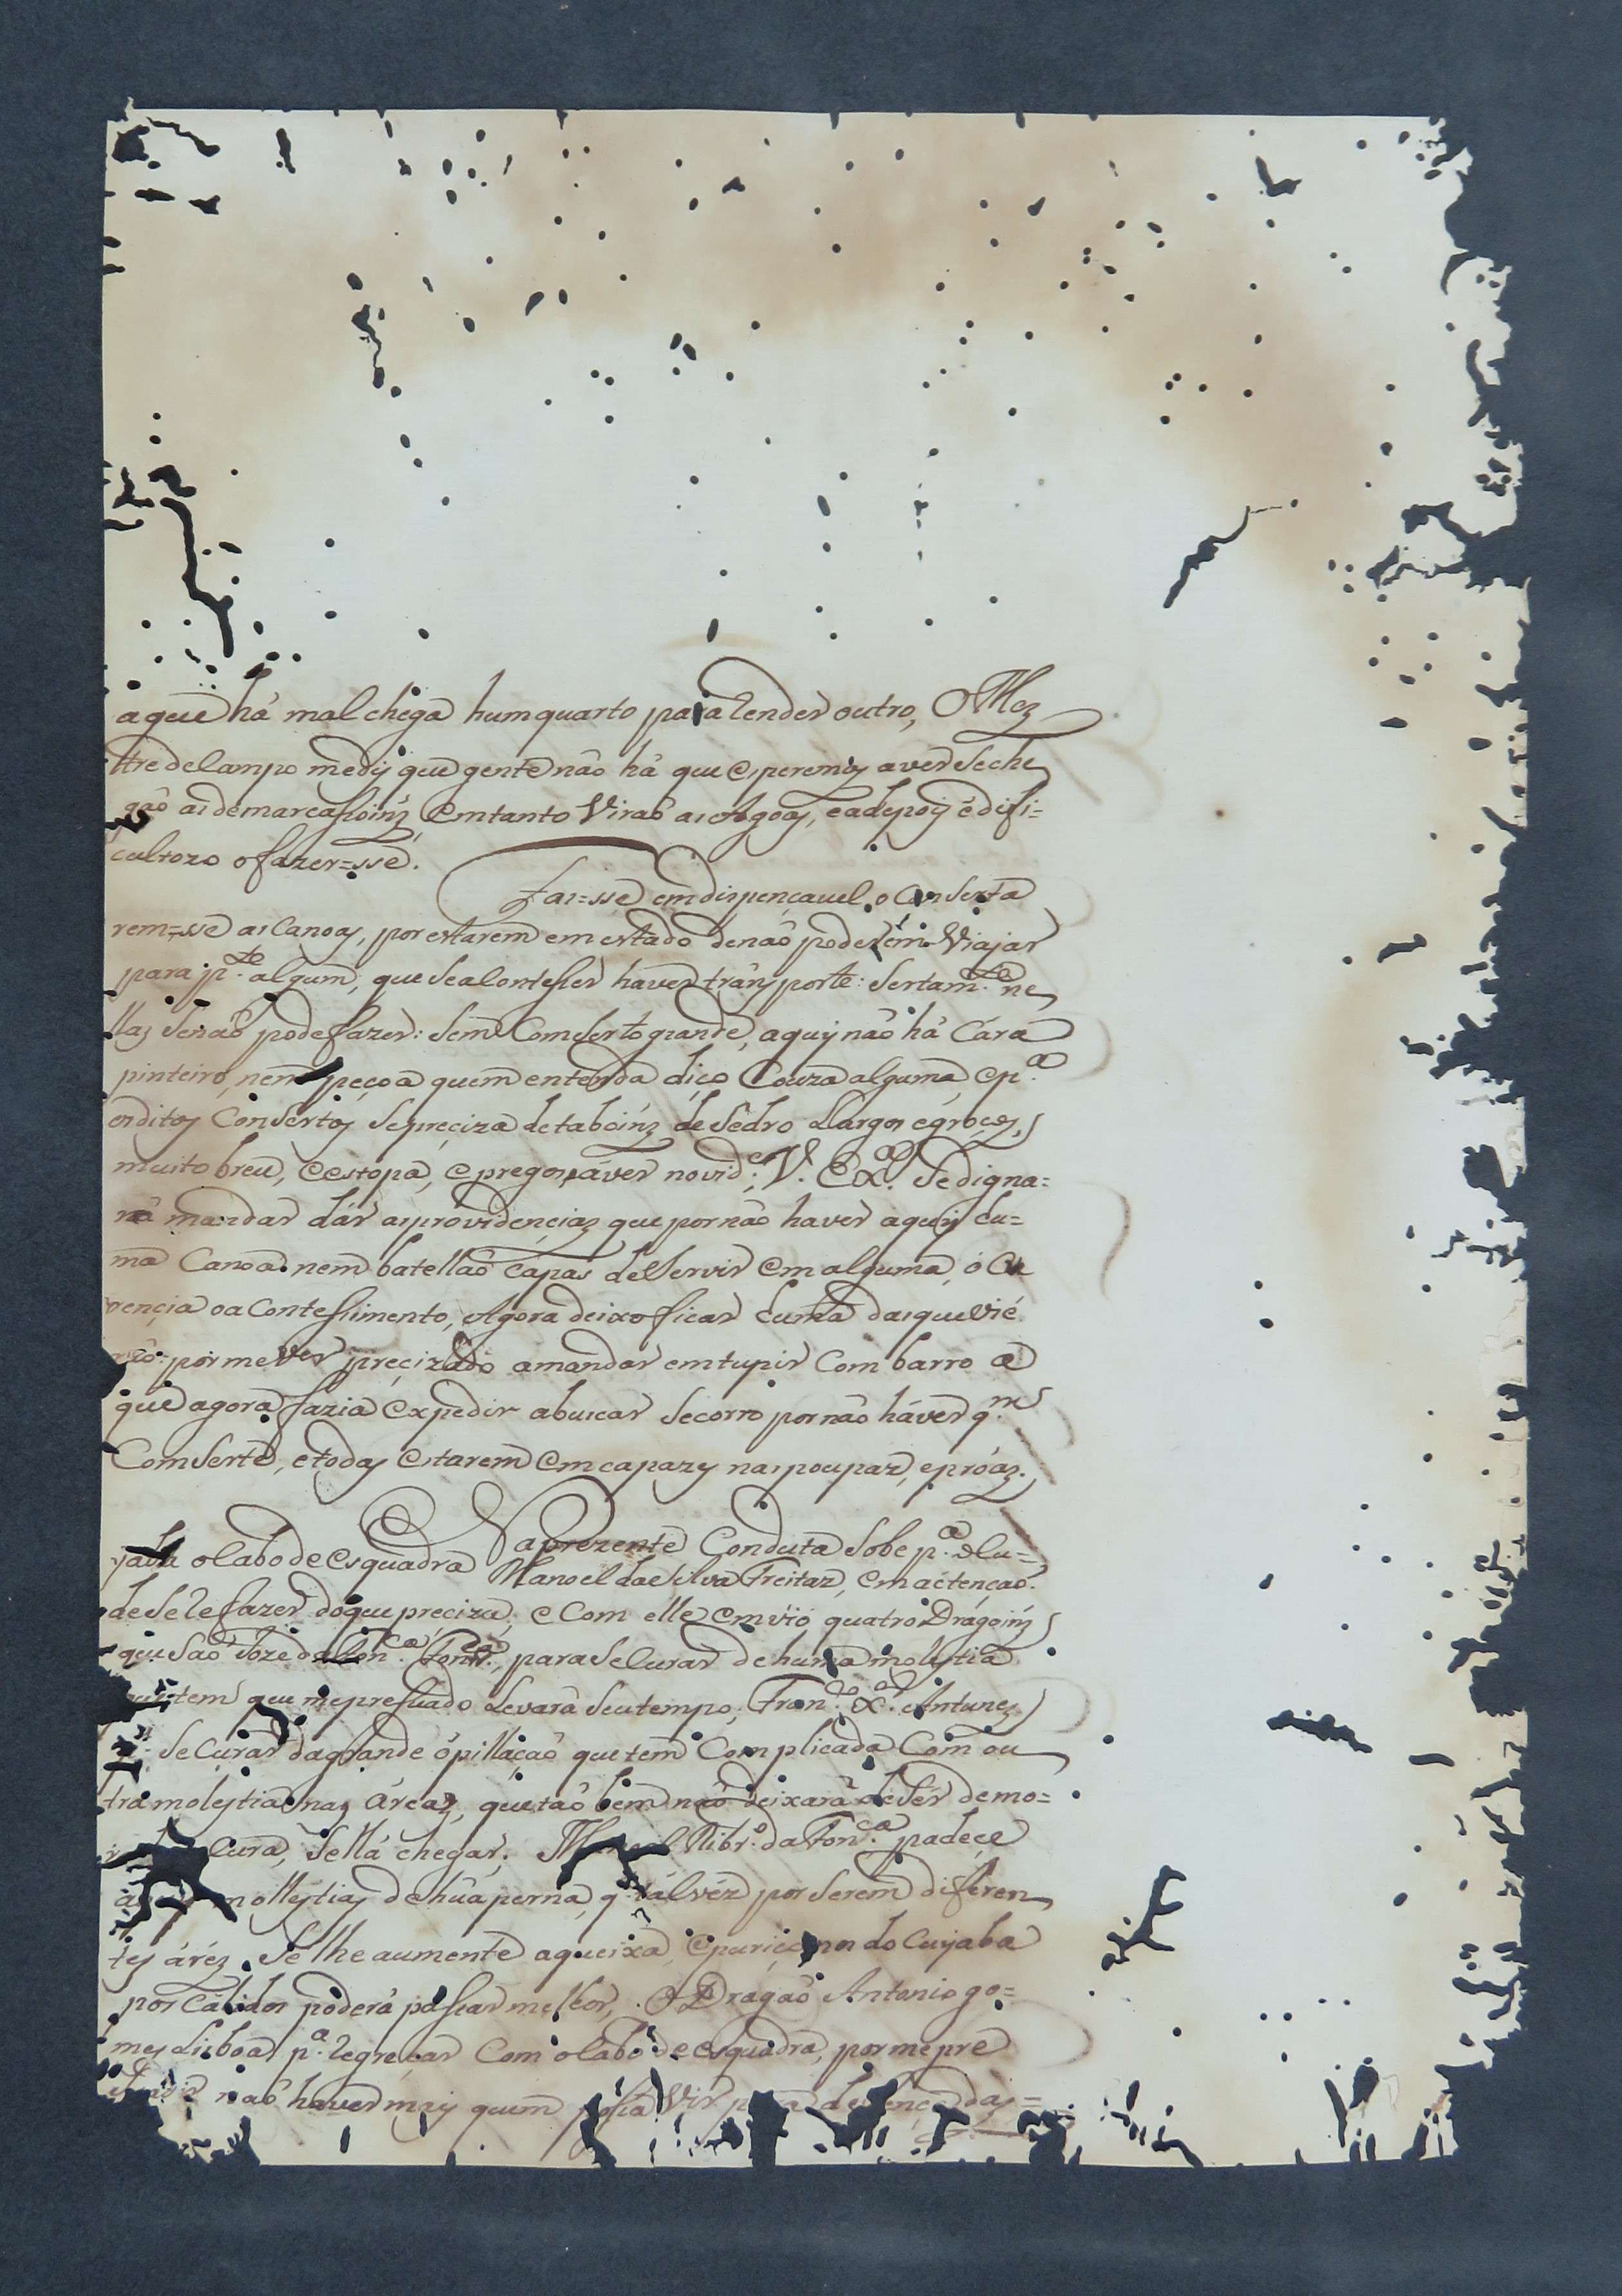 aque há mal chega hum quarto para render outro, O Mes
tre de Campo mediz que gente não há que esperemos a ver se che
gão as demarcassoins, emtanto Virão as Agoas, e adepois é difi=
cultozo o fazer=sse.
Fas=sse emdispençavel o Conserta
rem=sse as Canoas, por estarem em estado de não poderem Viajar
para p.te algum, que se acontesser haver transporte: Sertam.te ne
llas Senão pode fazer: sem Comserto grande, aquy não há Cara
pinteiro, nem peçoa quem entenda diço Couza alguma, e p.a
os ditos Consertos se preciza de taboins de Sedro Largos e groços,
muito breu, e estopa, e pregos, aver novid.e V. Ex.a Se digna=
rá mandar dár as providençias que por não haver aquy hu=
ma Canoa nem batellão Capas de Servir em alguma, ó Cu
rençia o a Contessimento, Agora deixo ficar huma das que vie
rão: por me ver precizado amandar emtupir Com barro a
que agora fazia expedir a buscar Secorro por não háver q.m
Comserte, e todas estarem emcapazes nas poupaz, e próaz.
Na prezente Conduta Sobe p.a o Cu=
yaba o Cabo de esquadra Manoel da Silva Freitaz, em actençaó
de Se le fazer do que preciza, e Com elle emvió quatro Dragoins
que São Joze da Con.ca Font.a, para Se Curar de huma molestia
que tem que me presuado Levará Seu tempo, Fran.co X.er Antunes
p.a Se Curar da grande ópillaçaó que tem Complicada Com ou
tra molestia nas Áreaz, que tão bem não deixará de Sér demo=
Cura, Se llá chegar. Manoel Ribr.o da Fon.ca padeçe
mollestias de húa perna, q. tálvéz por Serem diferen
tes áréz, Se lhe aumente a queixa, e puriço nos do Cuyaba
por Cálidos poderá passar melhor, O Dragaó Antonio go=
mes Lisboa p.a regreçar Com o Cabo de esquadra, por me pre
não haver mais quem possa Vir das=